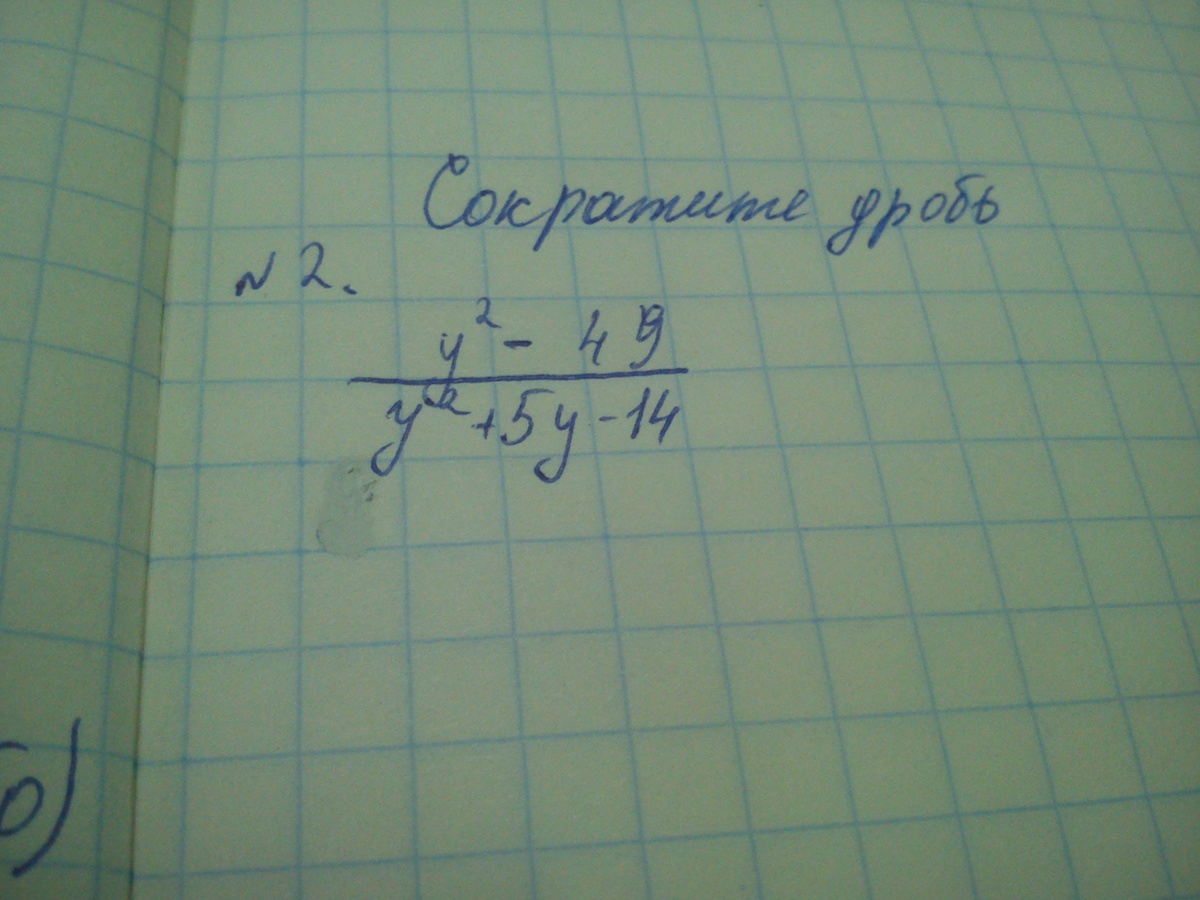 Сократите дробь
№ 2.
y² - 49
y² + 5y - 14
б)